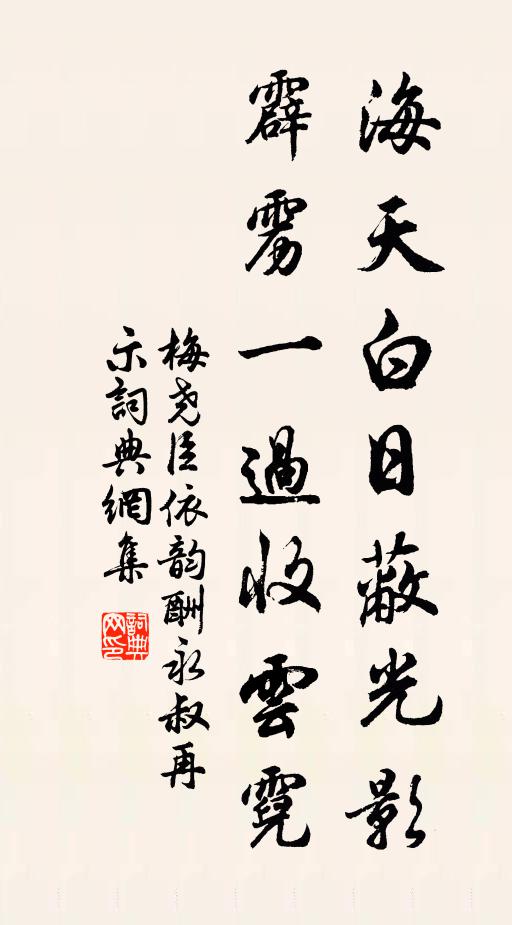 海天白日蔽光影
霹雳一過收雲霓
梅尧臣依韵酬永叔再
示詞典網集
詞典网印